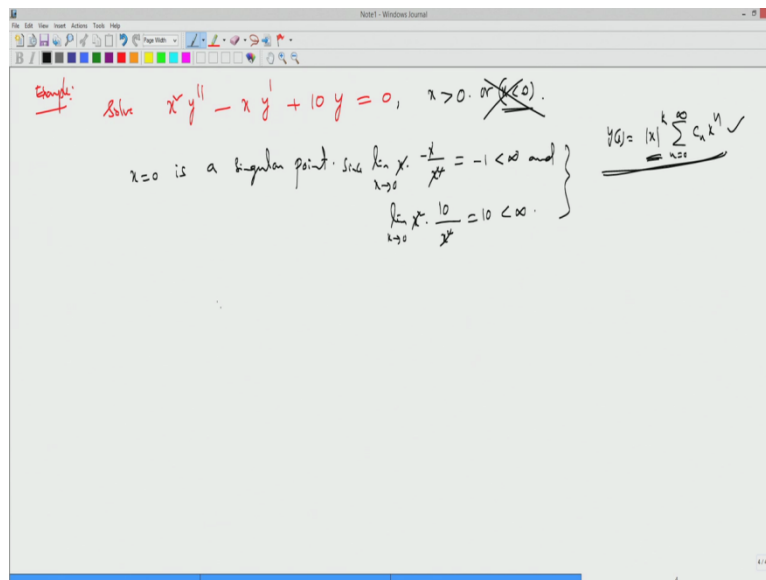 Note1 - Windows Journal
File Edit View Insert Actions Tools Help
Page Width
B I
Example: Solve x² y'' - x y' + 10 y = 0, x > 0. or (x < 0).
y(x) = |x|^k ∑_{n=0}^{∞} c_n x^n ✓
x=0 is a singular point. Since lim_{x→0} x · -x/x² = -1 < ∞ and
lim_{x→0} x² · 10/x² = 10 < ∞.